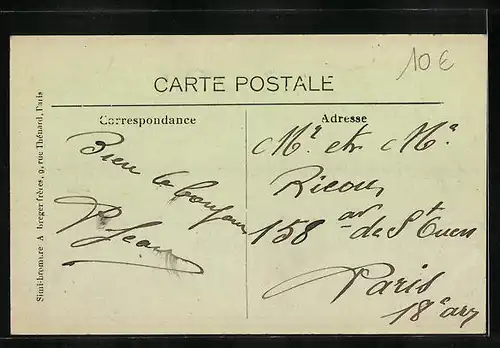 10€
CARTE POSTALE
Correspondance
Adresse
Bien le bonjour
P. Jean
Mr et Me
Ricou,
158 av de St Ouen
Paris
18e arr
Simi-bromure A Breger frères, 9, rue Thénard, Paris